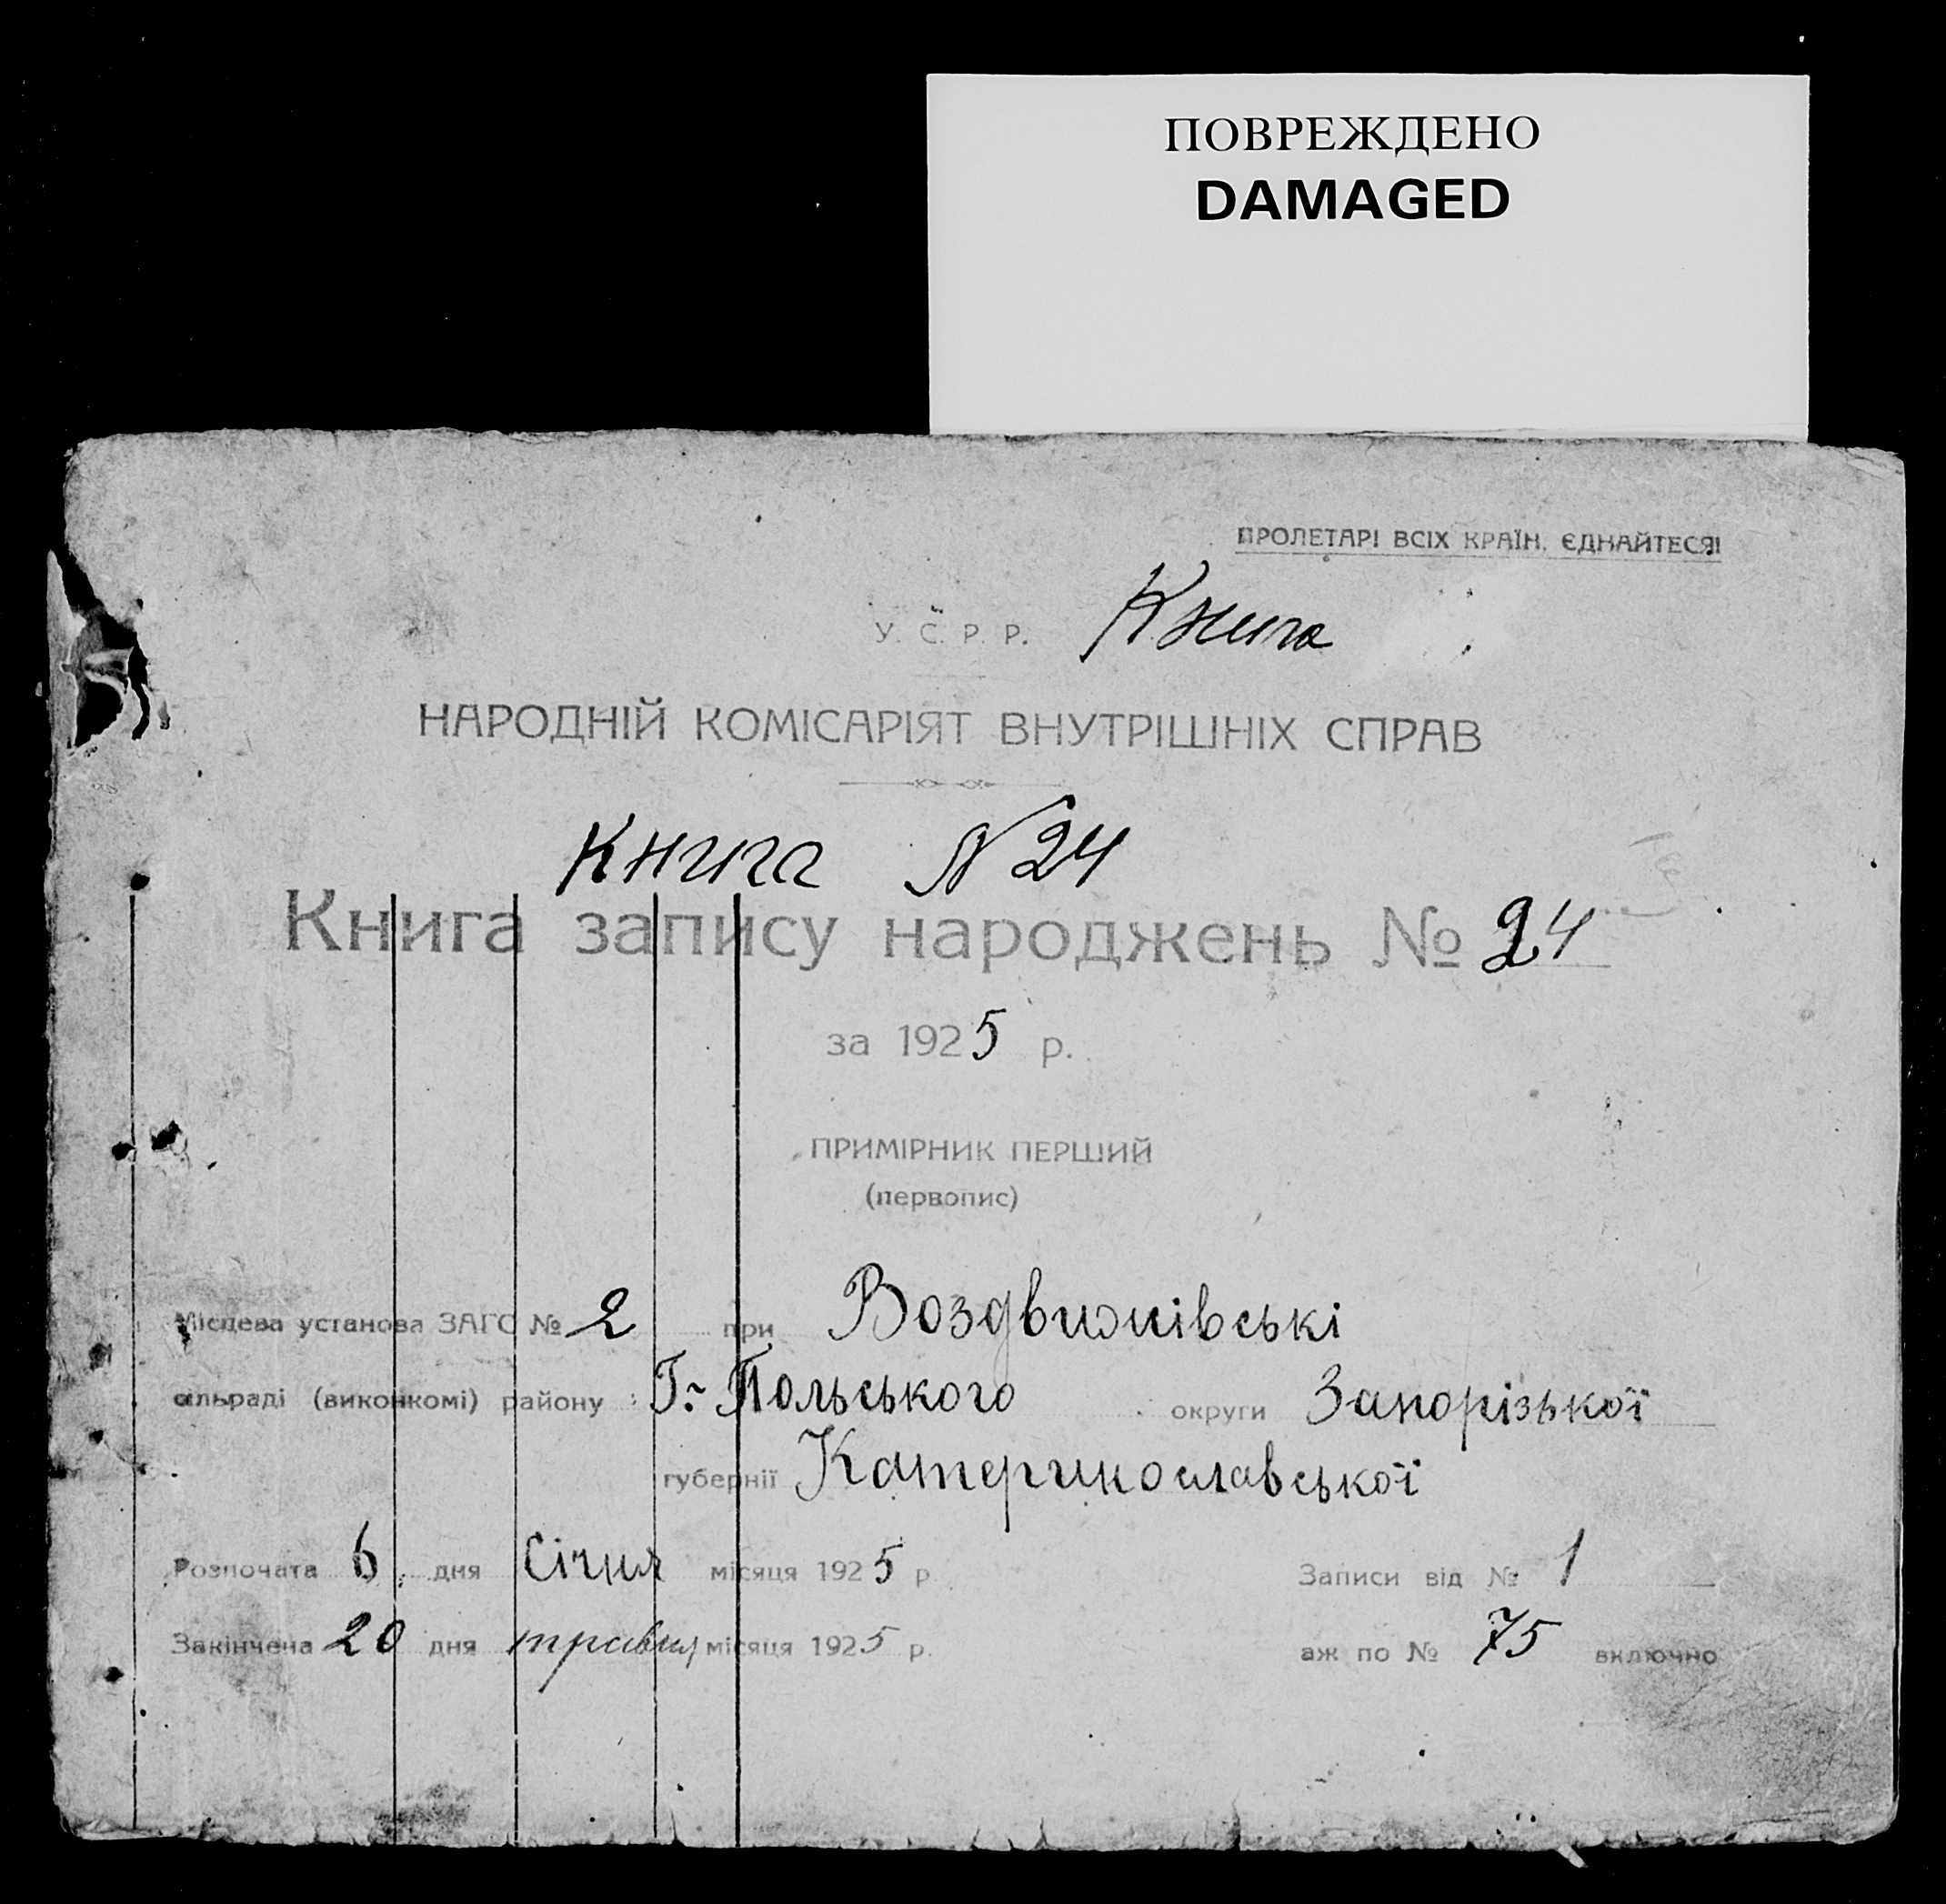 ПОВРЕЖДЕНО
DAMAGED
ПРОЛЕТАРІ ВСІХ КРАЇН, ЄДНАЙТЕСЯ!
У. С. Р. Р. Книга
НАРОДНІЙ КОМІСАРІЯТ ВНУТРІШНІХ СПРАВ
Книга N 24
Книга запису народжень № 24
за 1925 р.
ПРИМІРНИК ПЕРШИЙ
(первопис)
Місцева установа ЗАГС № 2 при Воздвижнівські
сільраді (виконкомі) району Г.-Польського округи Запорізької
губернії Катеринославської
Розпочата 6 дня Січня місяця 1925 р. Записи від № 1
Закінчена 20 дня травня місяця 1925 р. аж по № 75 включно